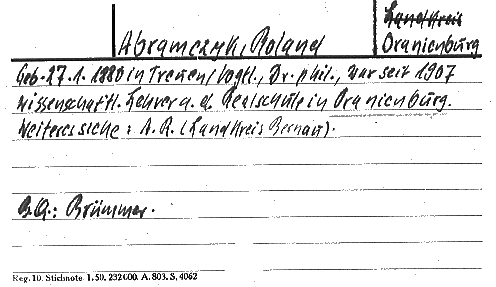 Landkreis
Abramczyk, Roland Oranienburg
Geb. 27.1.1880 in Treuen/Vogtl., Dr. phil., war seit 1907
wissenschaftl. Lehrer a. d. Realschule in Oranienburg.
Weiteres siehe: A.R. (Landkreis Bernau).
B.Q.: Brümmer.
Reg. 10. Stichnote. 1. 50. 232000. A. 803. S. 4062